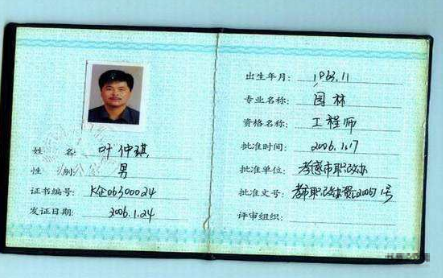 姓 名: 叶仲琪
性 别: 男
证书编号: KGC06300024
发证日期: 2006.1.24
出生年月: 1963.11
专业名称: 园林
资格名称: 工程师
批准时间: 2006.1.17
批准单位: 孝感市职改办
批准文号:
评审组织: